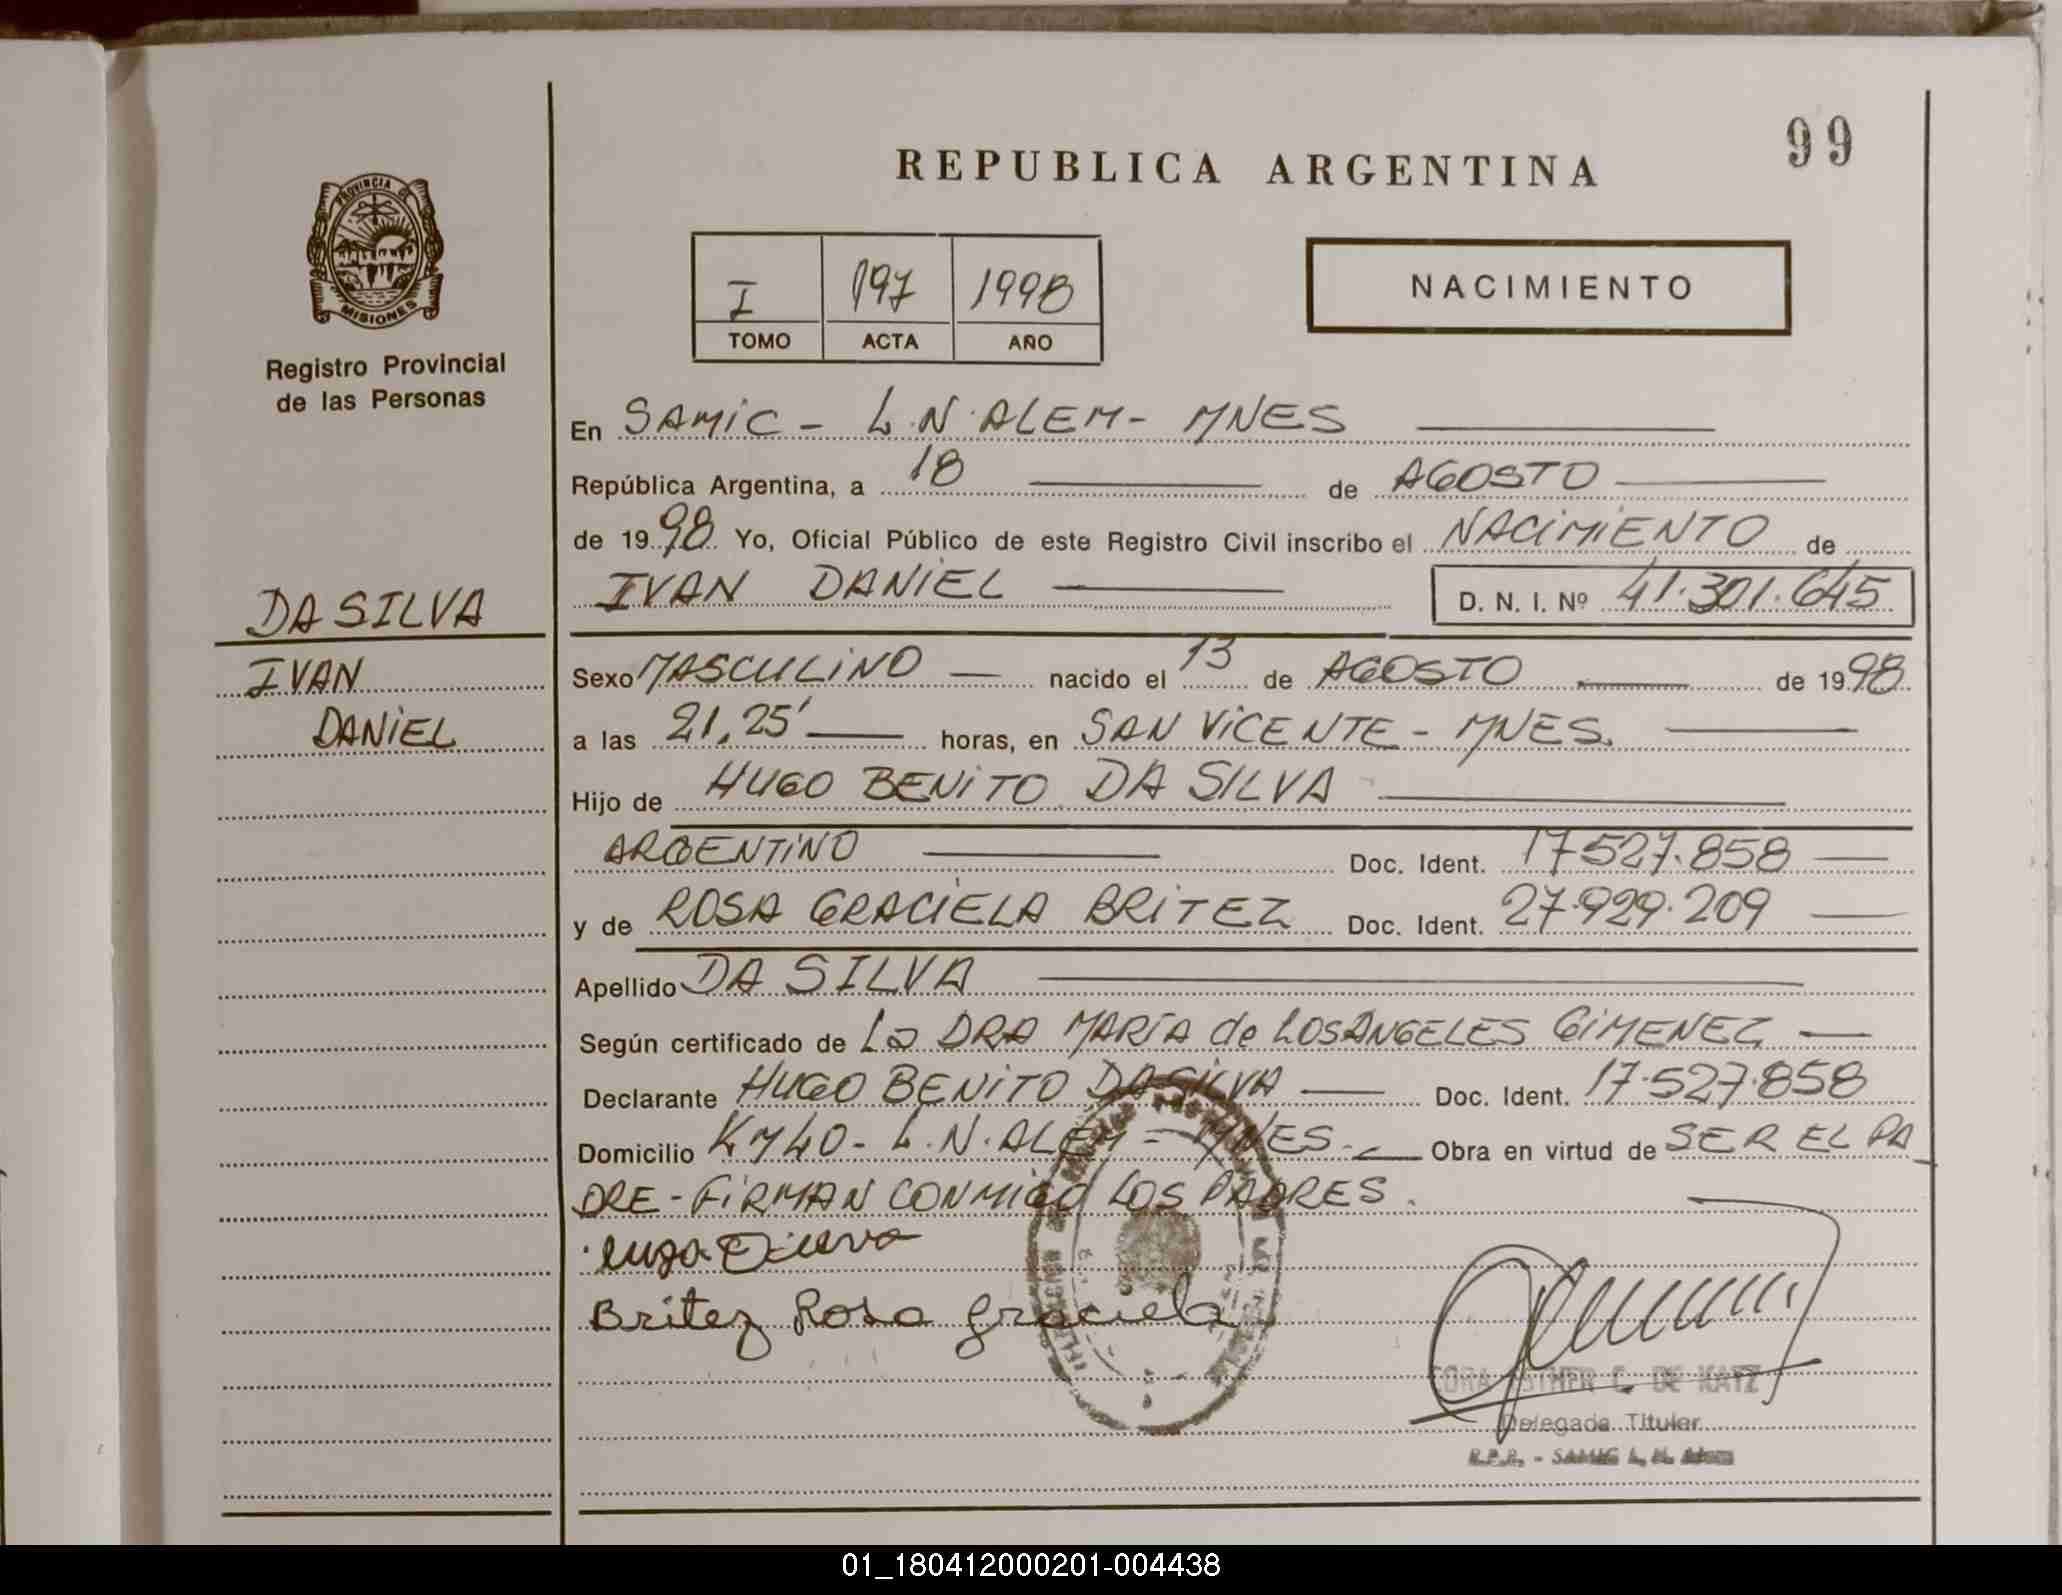 99
REPUBLICA ARGENTINA
PROVINCIA DE
MISIONES
Registro Provincial
de las Personas
I 197 1998
TOMO ACTA AÑO
NACIMIENTO
En SAMIC - L.N. ALEM - MNES
República Argentina, a 18 de AGOSTO
de 1998 Yo, Oficial Público de este Registro Civil inscribo el NACIMIENTO de
IVAN DANIEL D. N. I. Nº 41.301.645
DA SILVA
IVAN
DANIEL
Sexo MASCULINO nacido el 13 de AGOSTO de 1998
a las 21,25' horas, en SAN VICENTE - MNES.
Hijo de HUGO BENITO DA SILVA
ARGENTINO Doc. Ident. 17.527.858
y de ROSA GRACIELA BRITEZ Doc. Ident. 27.929.209
Apellido DA SILVA
Según certificado de La DRA MARÍA de LOS ANGELES GIMENEZ
Declarante HUGO BENITO DA SILVA Doc. Ident. 17.527.858
Domicilio KM 40 - L.N. ALEM - MNES - Obra en virtud de SER EL PA
DRE - FIRMAN CONMIGO LOS PADRES.
Britez Rosa Graciela
ESTHER C. DE KATZ
Delegada Titular
R.P.P. - SAMIC L. N. Alem
01_180412000201-004438